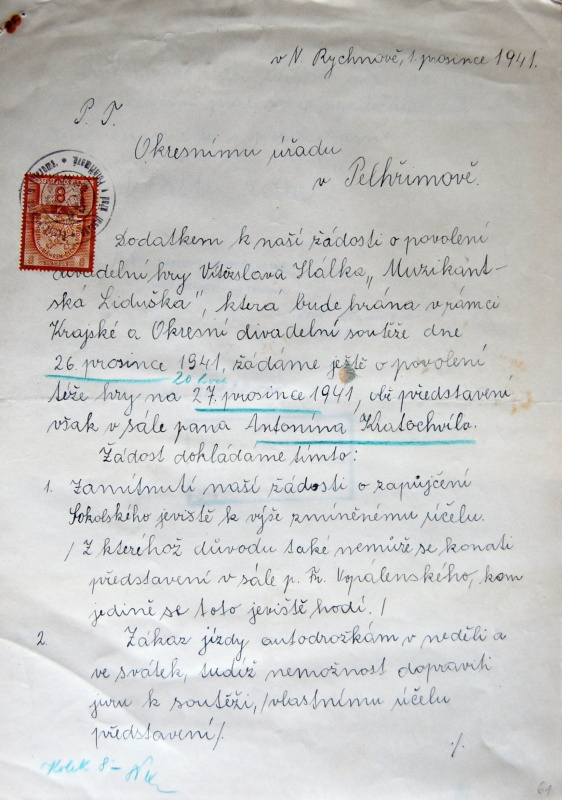 v N. Rychnově, 1. prosince 1941.
P. T.
Okresnímu úřadu
v Pelhřimově.
8
Dodatkem k naší žádosti o povolení
divadelní hry Vítězslava Hálka „Muzikant-
ská Liduška", která bude hrána v rámci
Krajské a Okresní divadelní soutěže dne
26. prosince 1941, žádáme ještě o povolení
20 hod.
téže hry na 27. prosince 1941, obě představení
však v sále pana Antonína Kratochvíla.
Žádost dokládáme tímto:
1. Zamítnutí naší žádosti o zapůjčení
Sokolského jeviště k výše zmíněnému účelu.
/ Z kteréhož důvodu také nemůže se konati
představení v sále p. Fr. Vopálenského, kam
jedině se toto jeviště hodí. /
2. Zákaz jízdy autodrožkám v neděli a
ve svátek, tudíž nemožnost dopraviti
juru k soutěži, /vlastnímu účelu
představení/.
./.
Kolek 8-
61